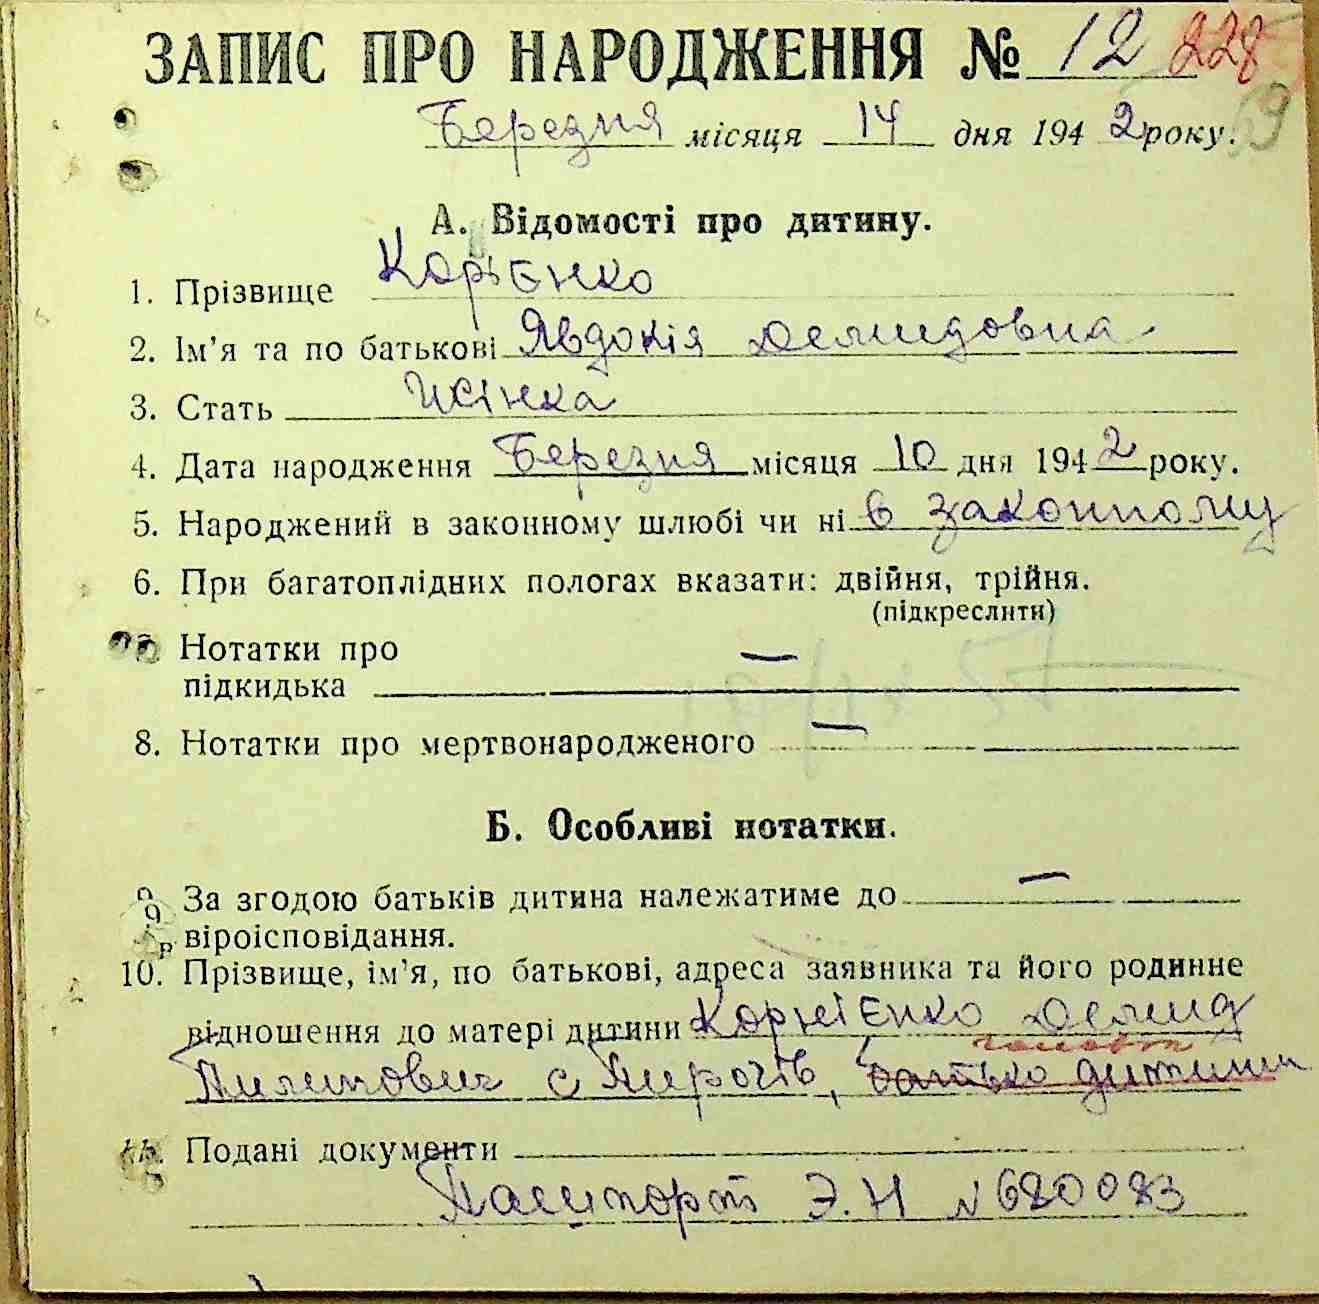 ЗАПИС ПРО НАРОДЖЕННЯ № 12 228
69
Березня місяця 14 дня 1942 року.
А. Відомості про дитину.
1. Прізвище Корієнко
2. Ім'я та по батькові Явдокія Демидовна
3. Стать жінка
4. Дата народження Березня місяця 10 дня 1942 року.
5. Народжений в законному шлюбі чи ні в законному
6. При багатоплідних пологах вказати: двійня, трійня.
(підкреслити)
7. Нотатки про —
підкидька
8. Нотатки про мертвонародженого —
Б. Особливі нотатки.
9. За згодою батьків дитина належатиме до —
віроісповідання.
10. Прізвище, ім'я, по батькові, адреса заявника та його родинне
відношення до матері дитини Корнієнко Демид
чоловік
Пилипович с Пирогів, батько дитини
11. Подані документи
Пашпорт Э.Н № 680083